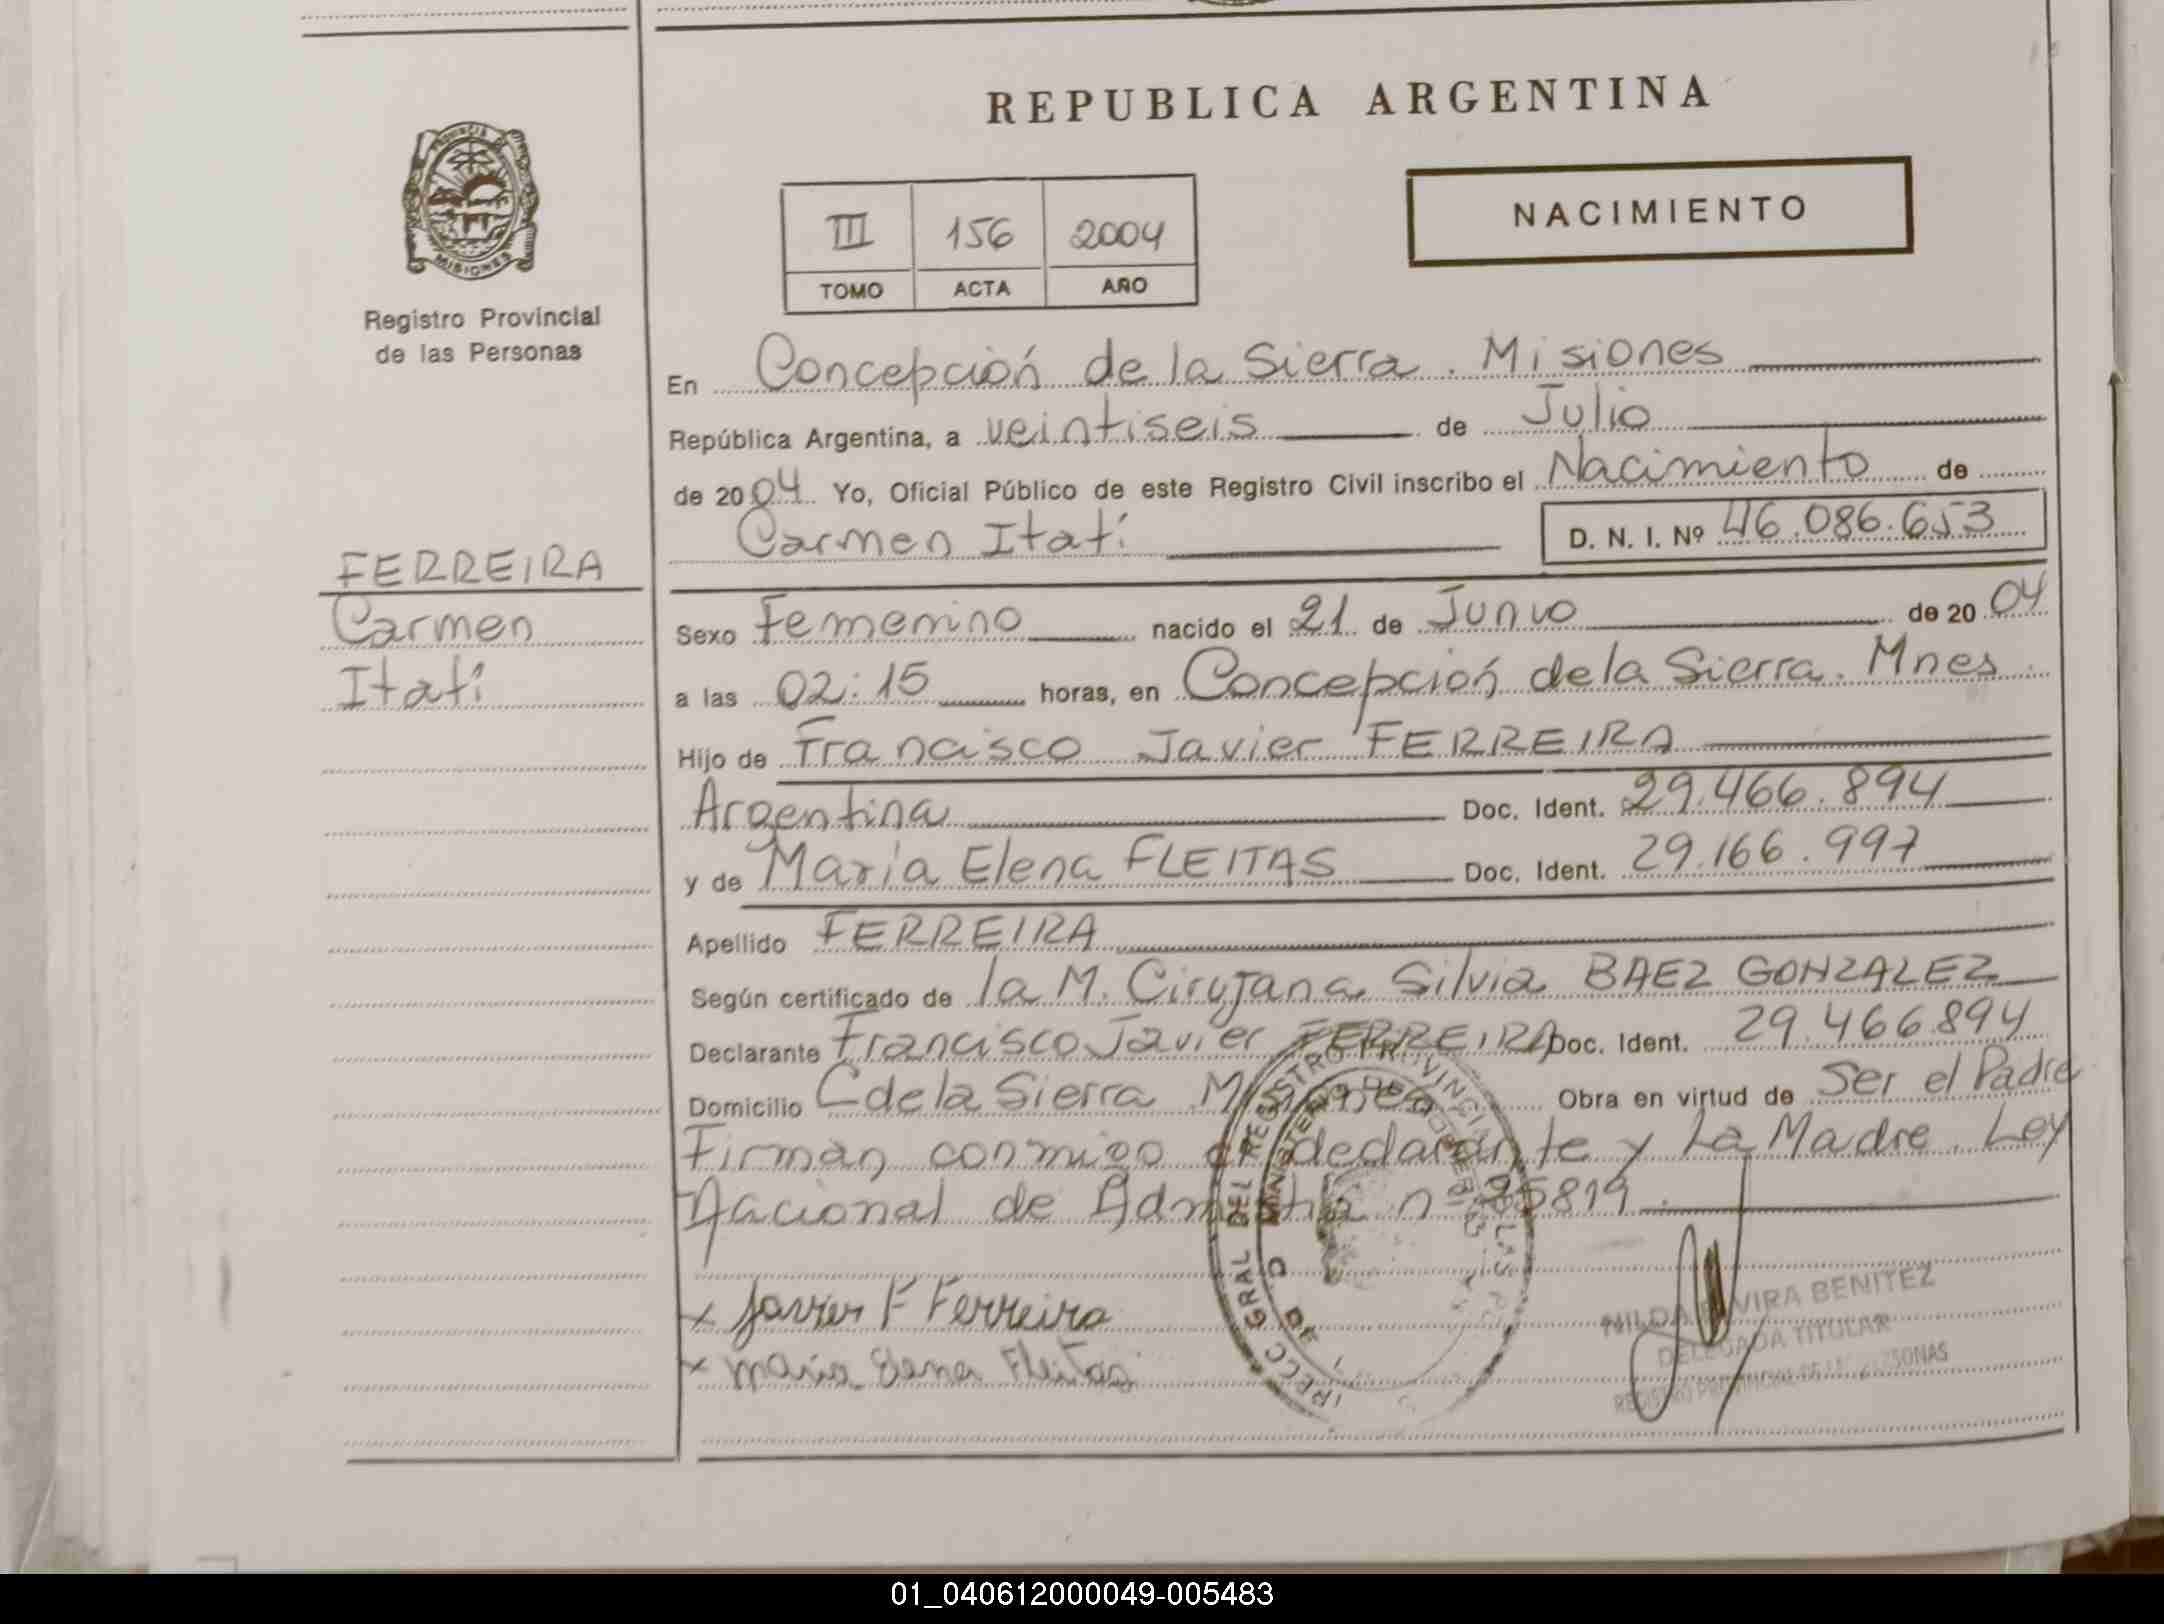 REPUBLICA ARGENTINA
PROVINCIA DE
MISIONES
Registro Provincial
de las Personas
III 156 2004
TOMO ACTA AÑO
NACIMIENTO
En Concepción de la Sierra. Misiones
República Argentina, a veintiseis de Julio
de 2004 Yo, Oficial Público de este Registro Civil inscribo el Nacimiento de
Carmen Itatí D. N. I. Nº 46.086.653
FERREIRA
Carmen
Itatí
Sexo Femenino nacido el 21 de Junio de 2004
a las 02:15 horas, en Concepción de la Sierra. Mnes.
Hijo de Francisco Javier FERREIRA
Argentina Doc. Ident. 29.466.894
y de María Elena FLEITAS Doc. Ident. 29.166.997
Apellido FERREIRA
Según certificado de la M. Cirujana Silvia BAEZ GONZALEZ
Declarante Francisco Javier FERREIRA Doc. Ident. 29.466.894
Domicilio C de la Sierra Misiones Obra en virtud de Ser el Padre
Firman conmigo el declarante y La Madre. Ley
Nacional de Admistia nº 25819.
x Javier F Ferreira
x maria Elena Fleitas
NILDA ELVIRA BENITEZ
DELEGADA TITULAR
REGISTRO PROVINCIAL DE LAS PERSONAS
GRAL DEL REGISTRO PROVINCIAL
01_040612000049-005483